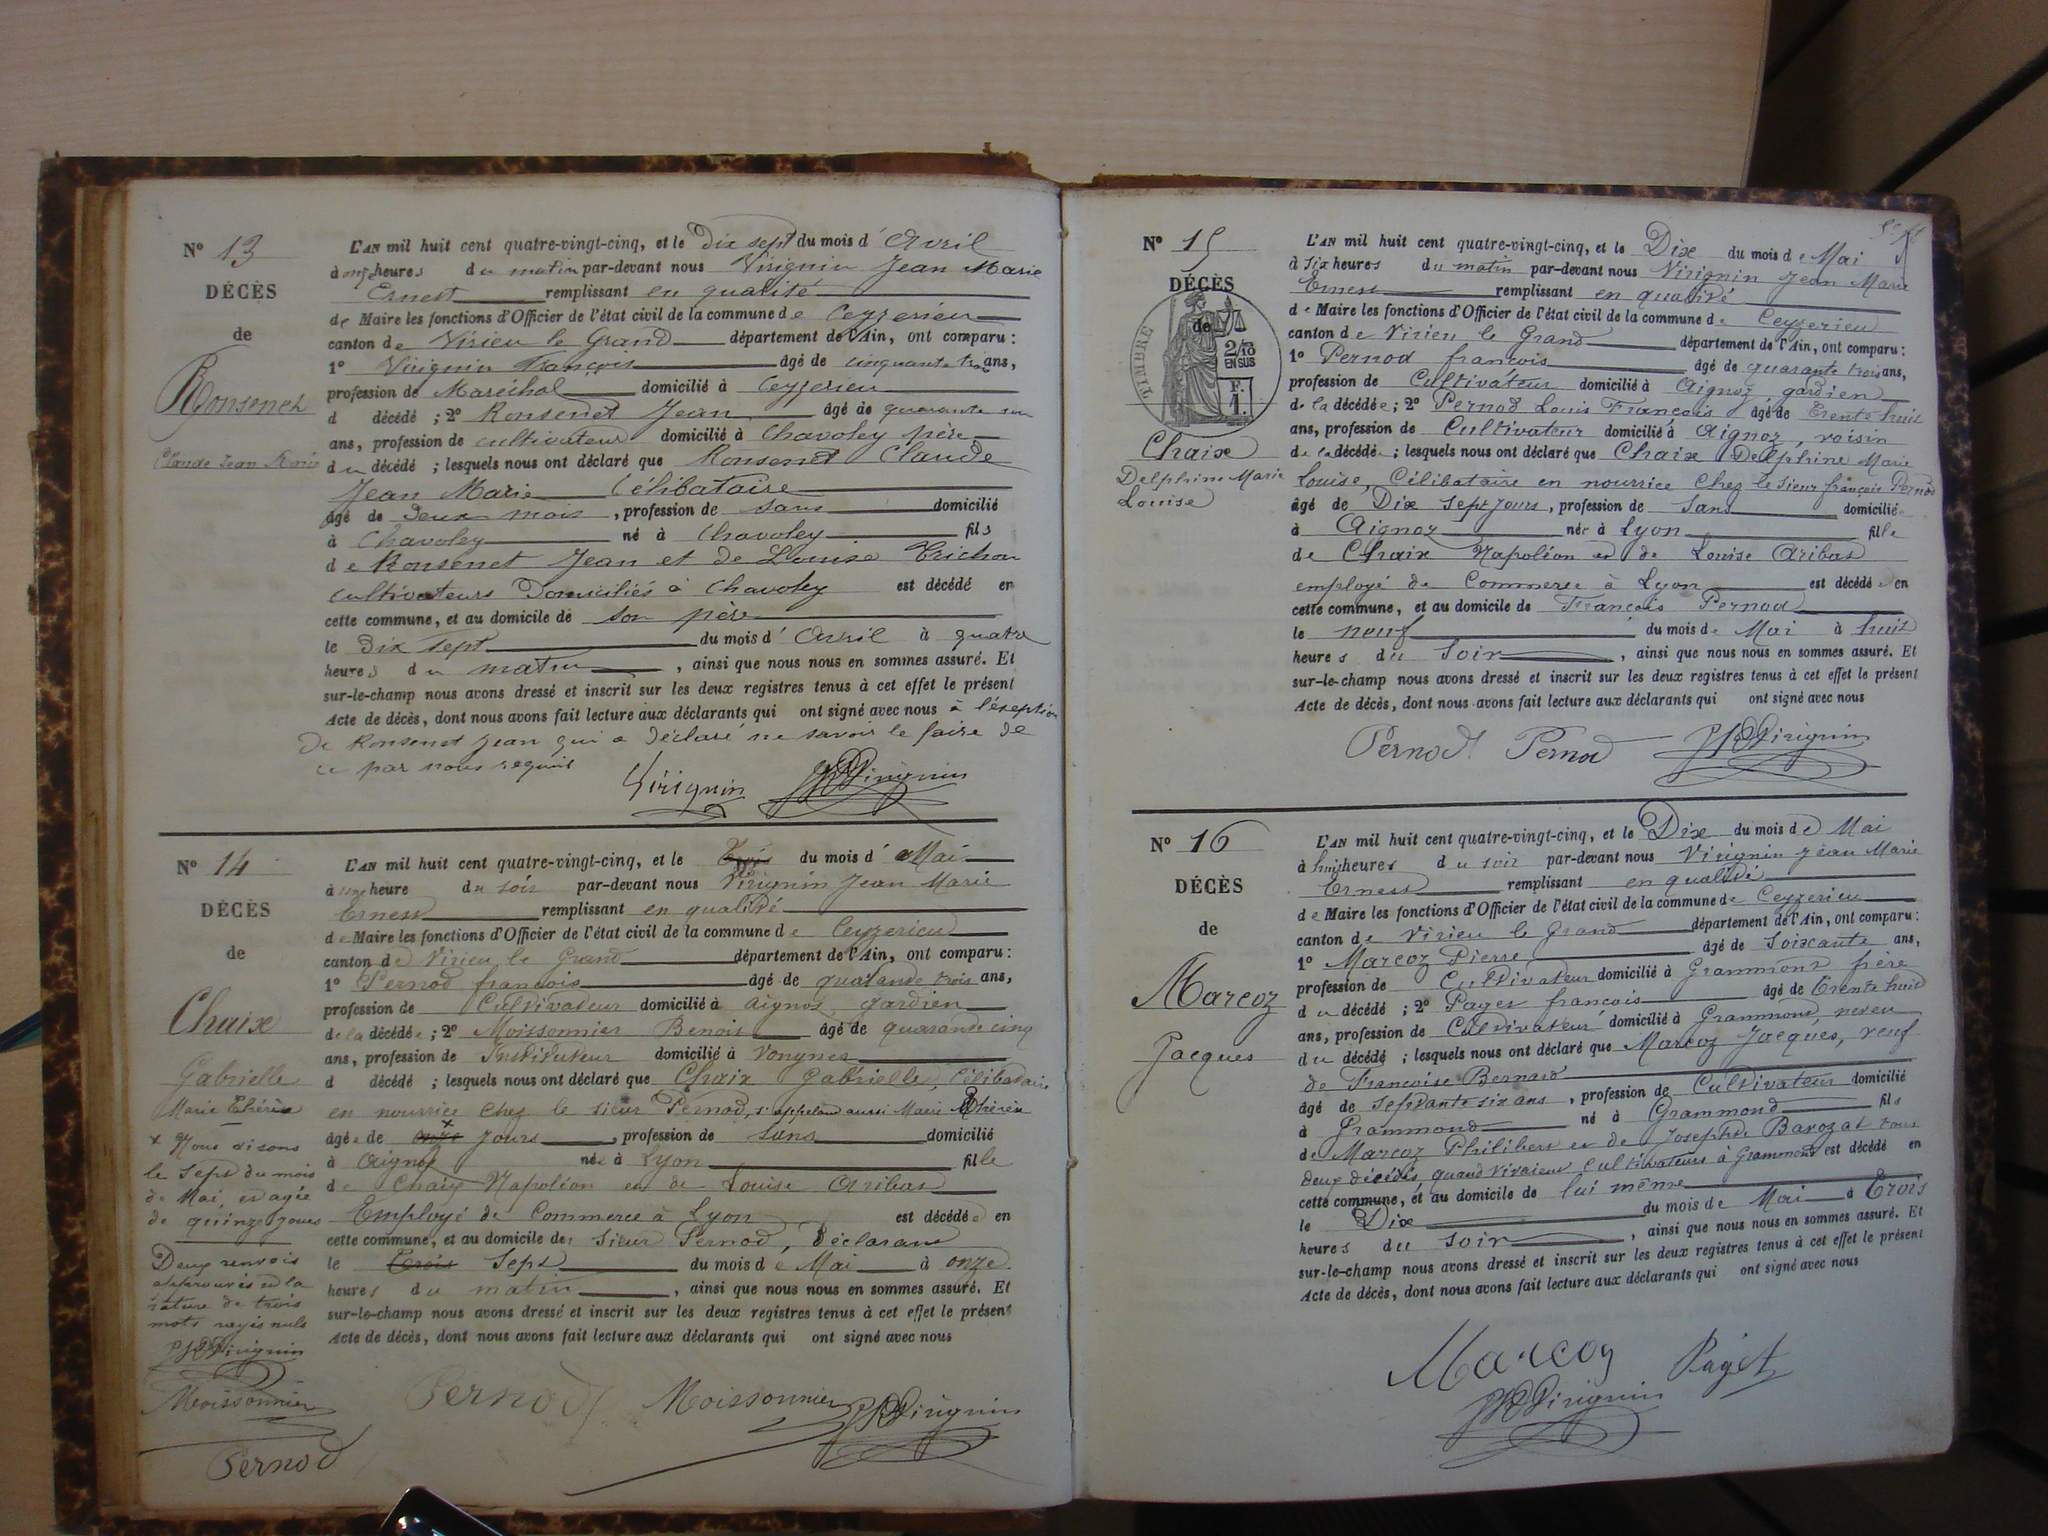 N° 13
DÉCÈS
de
Ronsenet
Claude Jean Marie
L'AN mil huit cent quatre-vingt-cinq, et le Dix sept du mois d' Avril
à onze heures du matin par-devant nous Virignin Jean Marie
Ernest remplissant en qualité
de Maire les fonctions d'Officier de l'état civil de la commune de Ceyzerieu
canton de Virieu le Grand département de l'Ain, ont comparu :
1° Virignin François âgé de cinquante trois ans,
profession de Maréchal domicilié à Ceyzerieu
d décédé ; 2° Ronsenet Jean âgé de quarante un
ans, profession de cultivateur domicilié à Chavoley père
du décédé ; lesquels nous ont déclaré que Ronsenet Claude
Jean Marie Célibataire
âgé de deux mois , profession de sans domicilié
à Chavoley né à Chavoley fils
de Ronsenet Jean et de Louise Trichon
cultivateurs Domiciliés à Chavoley est décédé en
cette commune, et au domicile de son père
le Dix sept du mois d' Avril à quatre
heures du matin , ainsi que nous nous en sommes assuré. Et
sur-le-champ nous avons dressé et inscrit sur les deux registres tenus à cet effet le présent
Acte de décès, dont nous avons fait lecture aux déclarants qui ont signé avec nous à l'éception
De Ronsenet Jean qui a déclaré ne savoir le faire de
ce par nous requis
Virignin Virignin
N° 14
DÉCÈS
de
Chaix
Gabrielle
Marie Thérèse
x Nous disons
le sept du mois
de Mai, et agée
de quinze jours
Deux renvois
approuvés et la
rature de trois
mots rayés nuls
Virignin
Moissonnier
Pernod
L'AN mil huit cent quatre-vingt-cinq, et le Trois du mois d' Mai
à une heure du soir par-devant nous Virignin Jean Marie
Ernest remplissant en qualité
de Maire les fonctions d'Officier de l'état civil de la commune de Ceyzerieu
canton de Virieu le Grand département de l'Ain, ont comparu :
1° Pernod françois âgé de quarante trois ans,
profession de Cultivateur domicilié à Aignoz gardien
de la décédée ; 2° Moissonnier Benoit âgé de quarante cinq
ans, profession de Instituteur domicilié à Vongnes
d décédé ; lesquels nous ont déclaré que Chaix Gabrielle, Célibataire
en nourrice chez le sieur Pernod, s'appelant aussi Marie Thérèse
âgée de onze x jours , profession de sans domicilié
à Aignoz née à Lyon fille
de Chaix Napoléon et de Louise Aribat
Employé de Commerce à Lyon est décédée en
cette commune, et au domicile de sieur Pernod, Déclarant
le Trois Sept du mois de Mai à onze
heures du matin , ainsi que nous nous en sommes assuré. Et
sur-le-champ nous avons dressé et inscrit sur les deux registres tenus à cet effet le présent
Acte de décès, dont nous avons fait lecture aux déclarants qui ont signé avec nous
Pernod Moissonnier Virignin
N° 15
DÉCÈS
de
TIMBRE
2/10
EN SUS
F.
1.
Chaix
Delphine Marie
Louise
L'AN mil huit cent quatre-vingt-cinq, et le Dix du mois de Mai
à six heures du matin par-devant nous Virignin Jean Marie
Ernest remplissant en qualité
de Maire les fonctions d'Officier de l'état civil de la commune de Ceyzerieu
canton de Virieu le Grand département de l'Ain, ont comparu :
1° Pernod françois âgé de quarante trois ans,
profession de Cultivateur domicilié à Aignoz gardien
de la décédée ; 2° Pernod Louis François âgé de Trente huit
ans, profession de Cultivateur domicilié à Aignoz, voisin
de la décédée ; lesquels nous ont déclaré que Chaix Delphine Marie
Louise, Célibataire en nourrice chez le sieur françois Pernod
âgé de Dix sept jours , profession de sans domicilié
à Aignoz née à Lyon fille
de Chaix Napoléon et de Louise Aribat
employé de Commerce à Lyon est décédée en
cette commune, et au domicile de François Pernod
le neuf du mois de Mai à huit
heures du soir , ainsi que nous nous en sommes assuré. Et
sur-le-champ nous avons dressé et inscrit sur les deux registres tenus à cet effet le présent
Acte de décès, dont nous avons fait lecture aux déclarants qui ont signé avec nous
Pernod Pernod Virignin
N° 16
DÉCÈS
de
Marcoz
Jacques
L'AN mil huit cent quatre-vingt-cinq, et le Dix du mois de Mai
à huit heures du soir par-devant nous Virignin Jean Marie
Ernest remplissant en qualité
de Maire les fonctions d'Officier de l'état civil de la commune de Ceyzerieu
canton de Virieu le Grand département de l'Ain, ont comparu :
1° Marcoz Pierre âgé de soixante ans,
profession de Cultivateur domicilié à Grammont frère
du décédé ; 2° Paget françois âgé de Trente huit
ans, profession de Cultivateur domicilié à Grammond neveu
du décédé ; lesquels nous ont déclaré que Marcoz Jacques, veuf
de Françoise Bernard
âgé de septante six ans , profession de Cultivateur domicilié
à Grammond né à Grammond fils
de Marcoz Philibert et de Josephte Barozat tous
deux décédés quand vivaient Cultivateurs à Grammont est décédé en
cette commune, et au domicile de lui même
le Dix du mois de Mai à Trois
heures du soir , ainsi que nous nous en sommes assuré. Et
sur-le-champ nous avons dressé et inscrit sur les deux registres tenus à cet effet le présent
Acte de décès, dont nous avons fait lecture aux déclarants qui ont signé avec nous
Marcoz Paget
Virignin